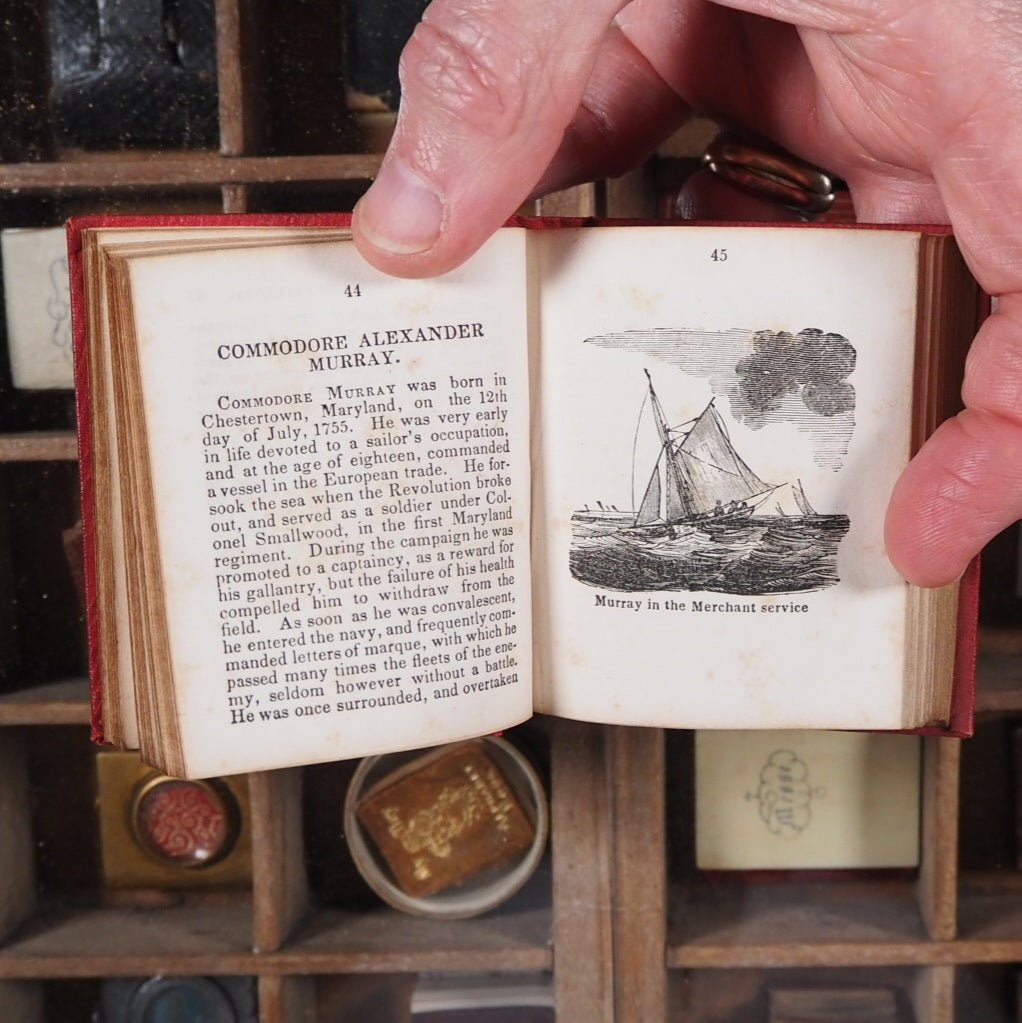 44
COMMODORE ALEXANDER
MURRAY.
COMMODORE MURRAY was born in
Chestertown, Maryland, on the 12th
day of July, 1755. He was very early
in life devoted to a sailor's occupation,
and at the age of eighteen, commanded
a vessel in the European trade. He for-
sook the sea when the Revolution broke
out, and served as a soldier under Col-
onel Smallwood, in the first Maryland
regiment. During the campaign he was
promoted to a captaincy, as a reward for
his gallantry, but the failure of his health
compelled him to withdraw from the
field. As soon as he was convalescent,
he entered the navy, and frequently com-
manded letters of marque, with which he
passed many times the fleets of the ene-
my, seldom however without a battle.
He was once surrounded, and overtaken
45
Murray in the Merchant service